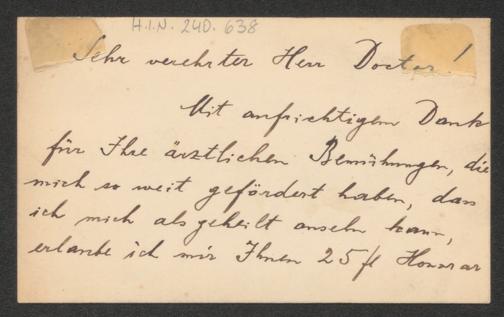 H.I.N. 240.638
Sehr verehrter Herr Doctor!
Mit aufrichtigem Dank
für Ihre ärztlichen Bemühungen, die
mich so weit gefördert haben, dass
ich mich als geheilt ansehn kann,
erlaube ich mir Ihnen 25 fl Honorar